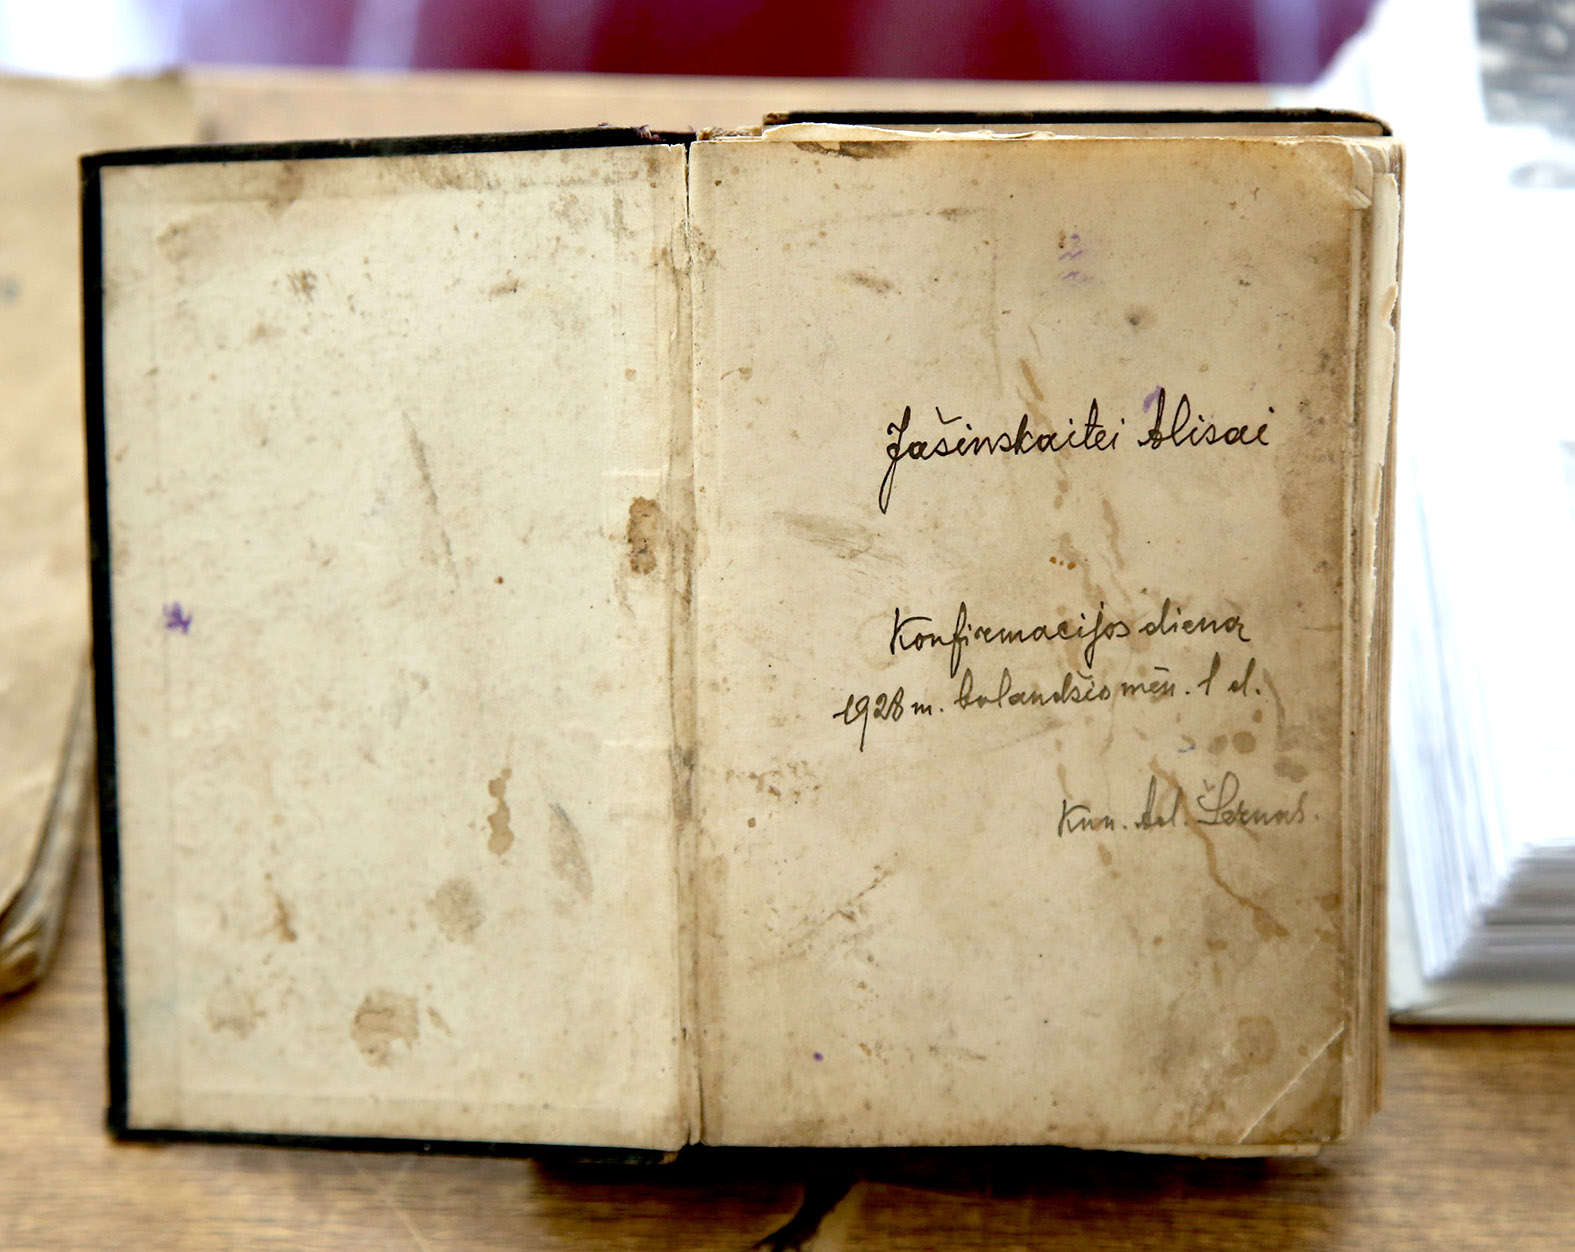 Jašinskaitei Alisai
Konfirmacijos dieną
1928 m. balandžio mėn. 1 d.
Kun. Ad. Šernas.